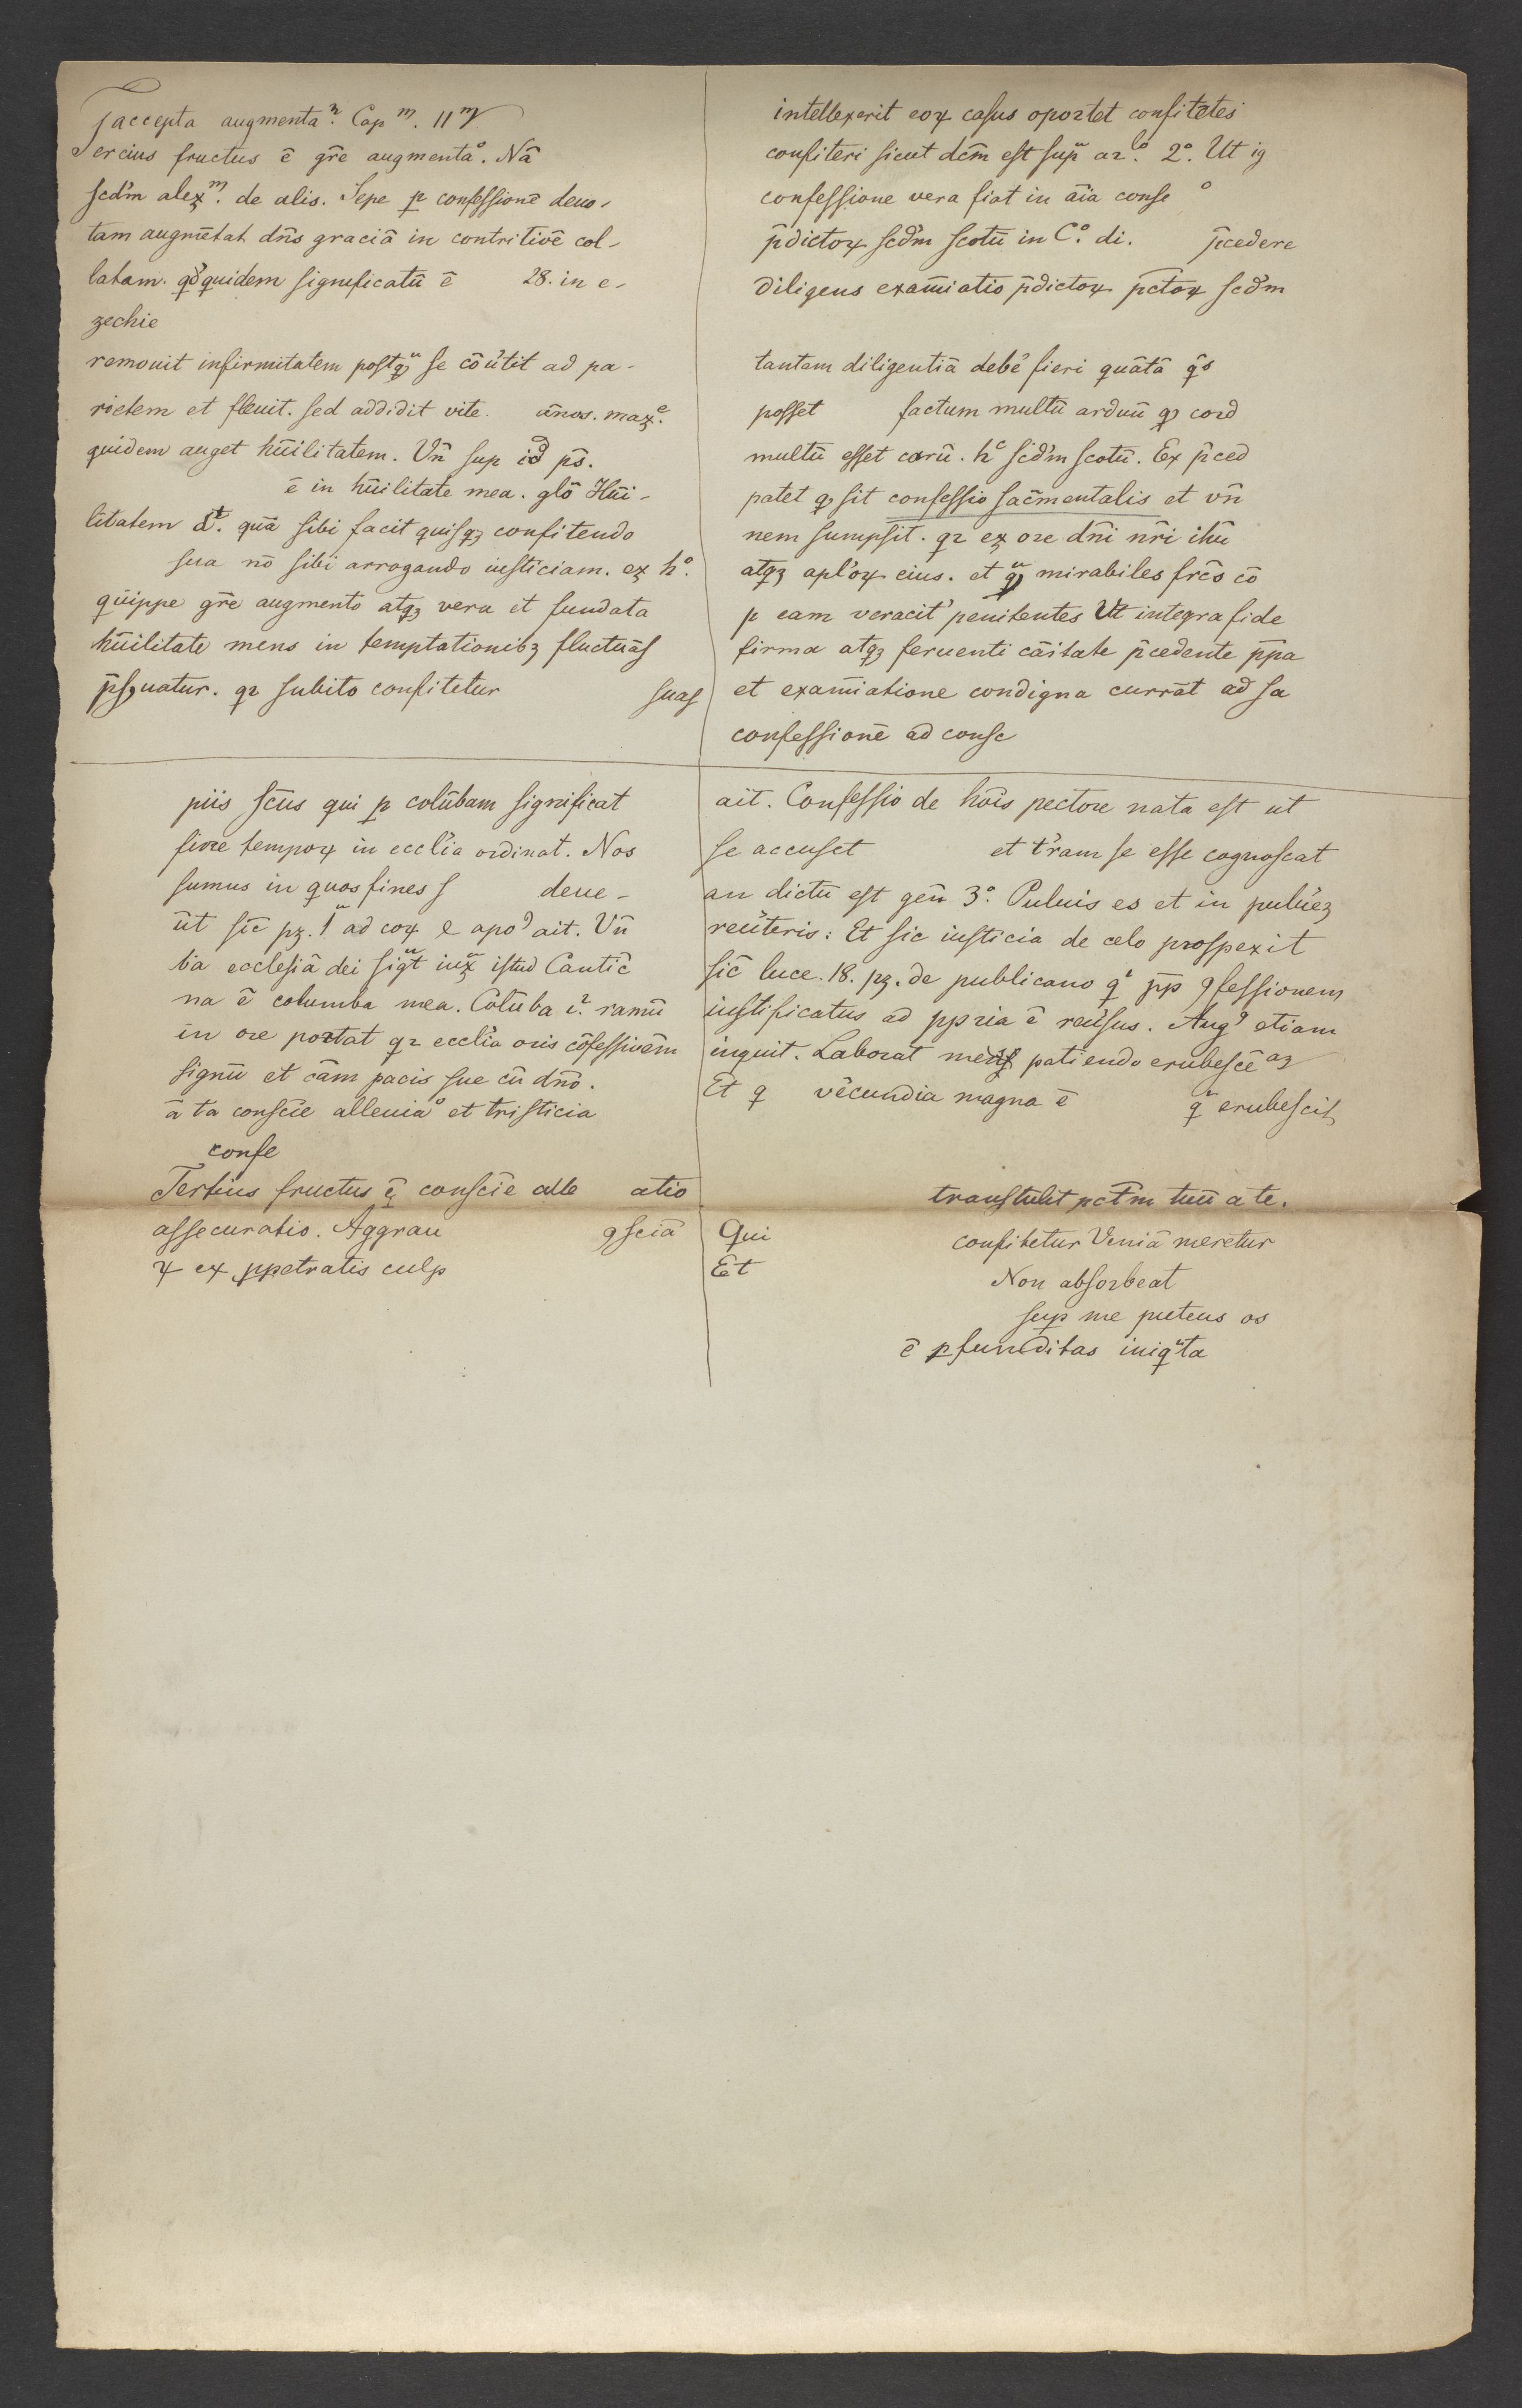 ſ accepta augmenta. Cap m. 11 m
Tercius fructus ē gr̄e augmentao. Nā
scd'm alex m. de alis. Sepe ꝑ confessionē deuo-
tam augmētat dn̄s graciā in contritiōe col-
latam. qd' quidem significatū ē 28. in e-
zechie
remouit infirmitatem postqꝫ se cōūtit ad pa-
rietem et fleuit. sed addidit vite. ānos. maxe.
quidem auget hūilitatem. Vn̄ sup id ps̄.
ē in hūilitate mea. glō Hūi-
litatem dt. quā sibi facit quisqꝫ confitendo
sua nō sibi arrogando iusticiam. ex ho.
quippe gr̄e augmento atqꝫ vera et fundata
hūilitate mens in temptationibꝫ fluctuās
p̄sꝫuatur. qꝛ subito confitetur suas
intellexerit eoꝝ casus opoꝛtet confitētes
confiteri sicut dcm̄ est supͣ aꝛlo. 2o. Ut ig
confessione vera fiat in āīa confe o
p̄dictoꝝ scd'm scotū in Co. di. p̄cedere
diligens examīatio p̄dictoꝝ pctoꝝ scd'm
tantam diligentiā debe' fieri quātā qͥs
posset factum multū arduū qꝫ coꝛd
multū esset carū. hc scd'm scotū. Ex p̄ced
patet qꝫ sit confessio sac̄mentalis et vn̄
nem sumpsit. qꝛ ex oꝛe dn̄i nr̄i ihū
atqꝫ apl'oꝝ eius. et qͣ mirabiles frc̄s cō
p eam veracit' penitentes Ut integra fide
firma atqꝫ feruenti cāitate p̄cedente p̄pa
et examīatione condigna currāt ad sa
confessionē ad consc
piis sc̄us qui ꝑ colūbam significat
fiōe tempoꝝ in eccl'ia oꝛdinat. Nos
sumus in quos fines ſ deue-
ūt sic̄ pꝫ. 1a ad coꝝ e apoꝰ ait. Vn̄
ba ecclesiā dei sigͣt iuxͣ istud Cantic̄
na ē columba mea. Colūba i. ramū
in oꝛe poꝛtat qꝛ eccl'ia oꝛis cōfessiōem
signū et cām pacis sue cū dn̄o.
ā ta consc̄ie alleuiao et tristicia
confe
Tertius fructus ē consc̄ie alle atio
assecuratio. Aggrau ꝯsciā
ꝝ ex ꝑpetratis culp
ait. Confessio de hōis pectoꝛe nata est ut
se accuset et t'ram se esse cognoscat
an dictū est gen̄ 3o. Puluis es et in puluēꝫ
reūteris: Et sic iusticia de celo pꝛospexit
sic̄ luce. 18. pꝫ. de publicano qͥ p̄p ꝯfessionem
iustificatus ad ppꝛia ē reūsus. Augꝰ etiam
inquit. Laboꝛat mens patiendo erubescē aꝫ
Et q v̄ecundia magna ē qͥ erubescit
transtulit pctm̄ tuū a te.
Qui confitetur Veniā meretur
Et Non absoꝛbeat
sup me puteus os
ē ꝓfunditas iniqͥta